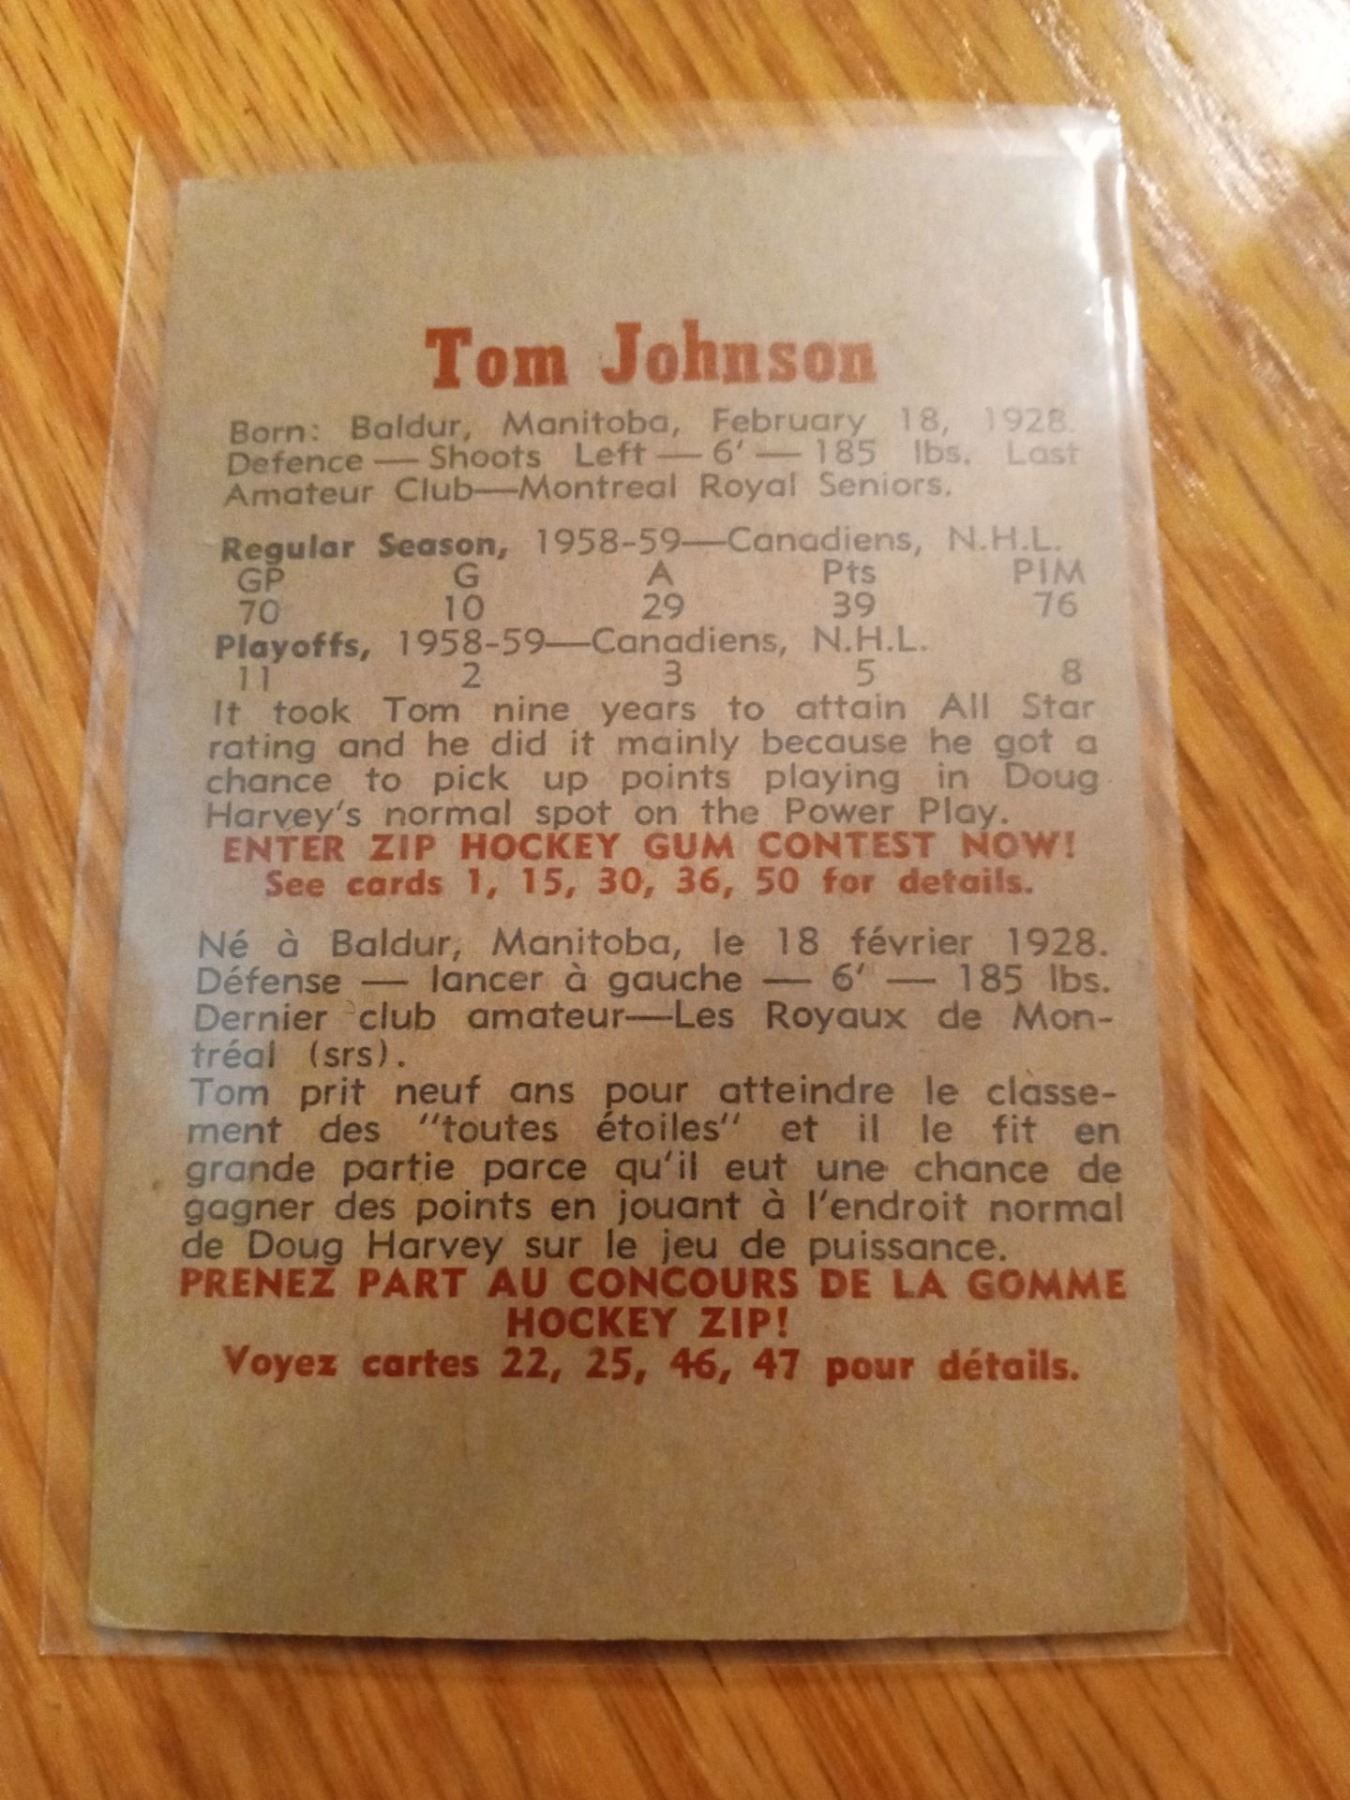 Tom Johnson
Born: Baldur, Manitoba, February 18, 1928.
Defence — Shoots Left — 6' — 185 lbs. Last
Amateur Club—Montreal Royal Seniors.
Regular Season, 1958-59—Canadiens, N.H.L.
GP G A Pts PIM
70 10 29 39 76
Playoffs, 1958-59—Canadiens, N.H.L.
11 2 3 5 8
It took Tom nine years to attain All Star
rating and he did it mainly because he got a
chance to pick up points playing in Doug
Harvey's normal spot on the Power Play.
ENTER ZIP HOCKEY GUM CONTEST NOW!
See cards 1, 15, 30, 36, 50 for details.
Né à Baldur, Manitoba, le 18 février 1928.
Défense — lancer à gauche — 6' — 185 lbs.
Dernier club amateur—Les Royaux de Mon-
tréal (srs).
Tom prit neuf ans pour atteindre le classe-
ment des "toutes étoiles" et il le fit en
grande partie parce qu'il eut une chance de
gagner des points en jouant à l'endroit normal
de Doug Harvey sur le jeu de puissance.
PRENEZ PART AU CONCOURS DE LA GOMME
HOCKEY ZIP!
Voyez cartes 22, 25, 46, 47 pour détails.